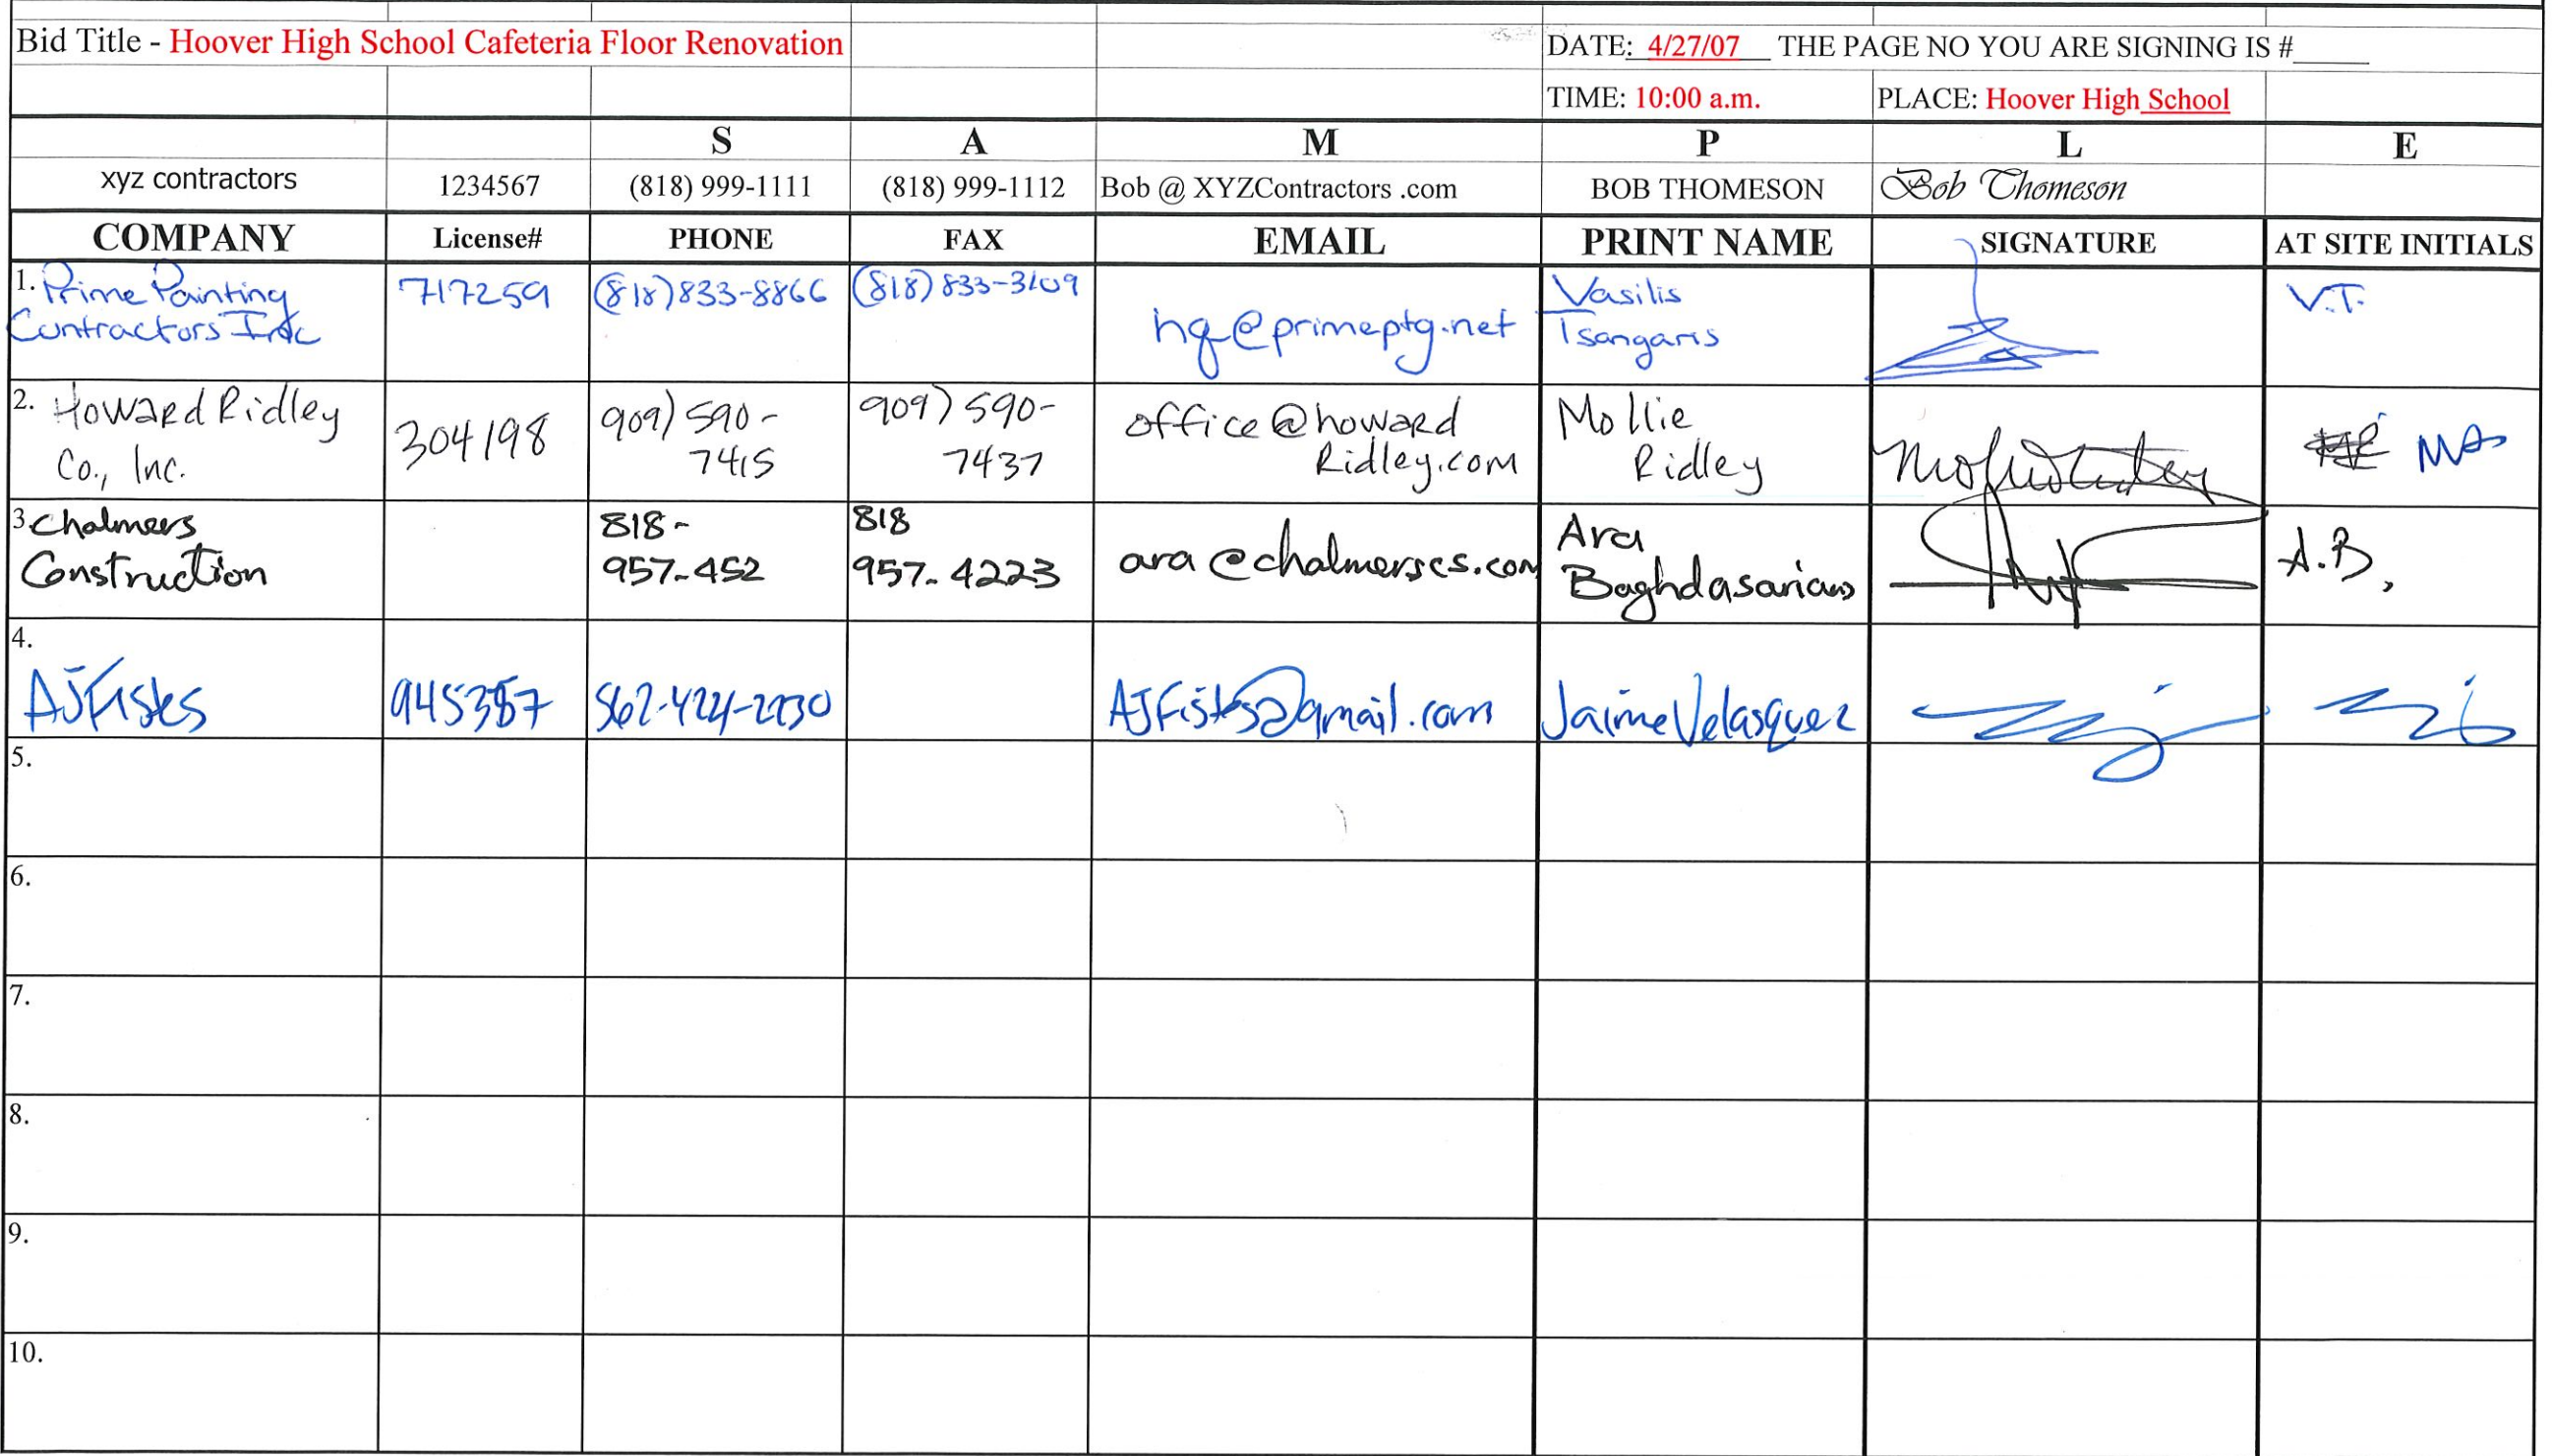 Bid Title - Hoover High School Cafeteria Floor Renovation
DATE: 4/27/07 THE PAGE NO YOU ARE SIGNING IS #
TIME: 10:00 a.m. PLACE: Hoover High School
S A M P L E
xyz contractors 1234567 (818) 999-1111 (818) 999-1112 Bob @ XYZContractors .com BOB THOMESON Bob Thomeson
COMPANY License# PHONE FAX EMAIL PRINT NAME SIGNATURE AT SITE INITIALS
1. Prime Painting 717259 (818)833-8866 (818)833-3109 Vasilis V.T.
Contractors Inc hq@primeptg.net Tsangaris
2. Howard Ridley 304198 909) 590- 909) 590- office@howard Mollie
Co., Inc. 7415 7437 Ridley.com Ridley
3. Chalmers 818- 818 Ara
Construction 957-452 957-4223 ara@chalmerscs.com Baghdasarians A.B.
4.
AJ Fistes 945387 562-424-2230 AJFistes@gmail.com Jaime Velasquez
5.
6.
7.
8.
9.
10.